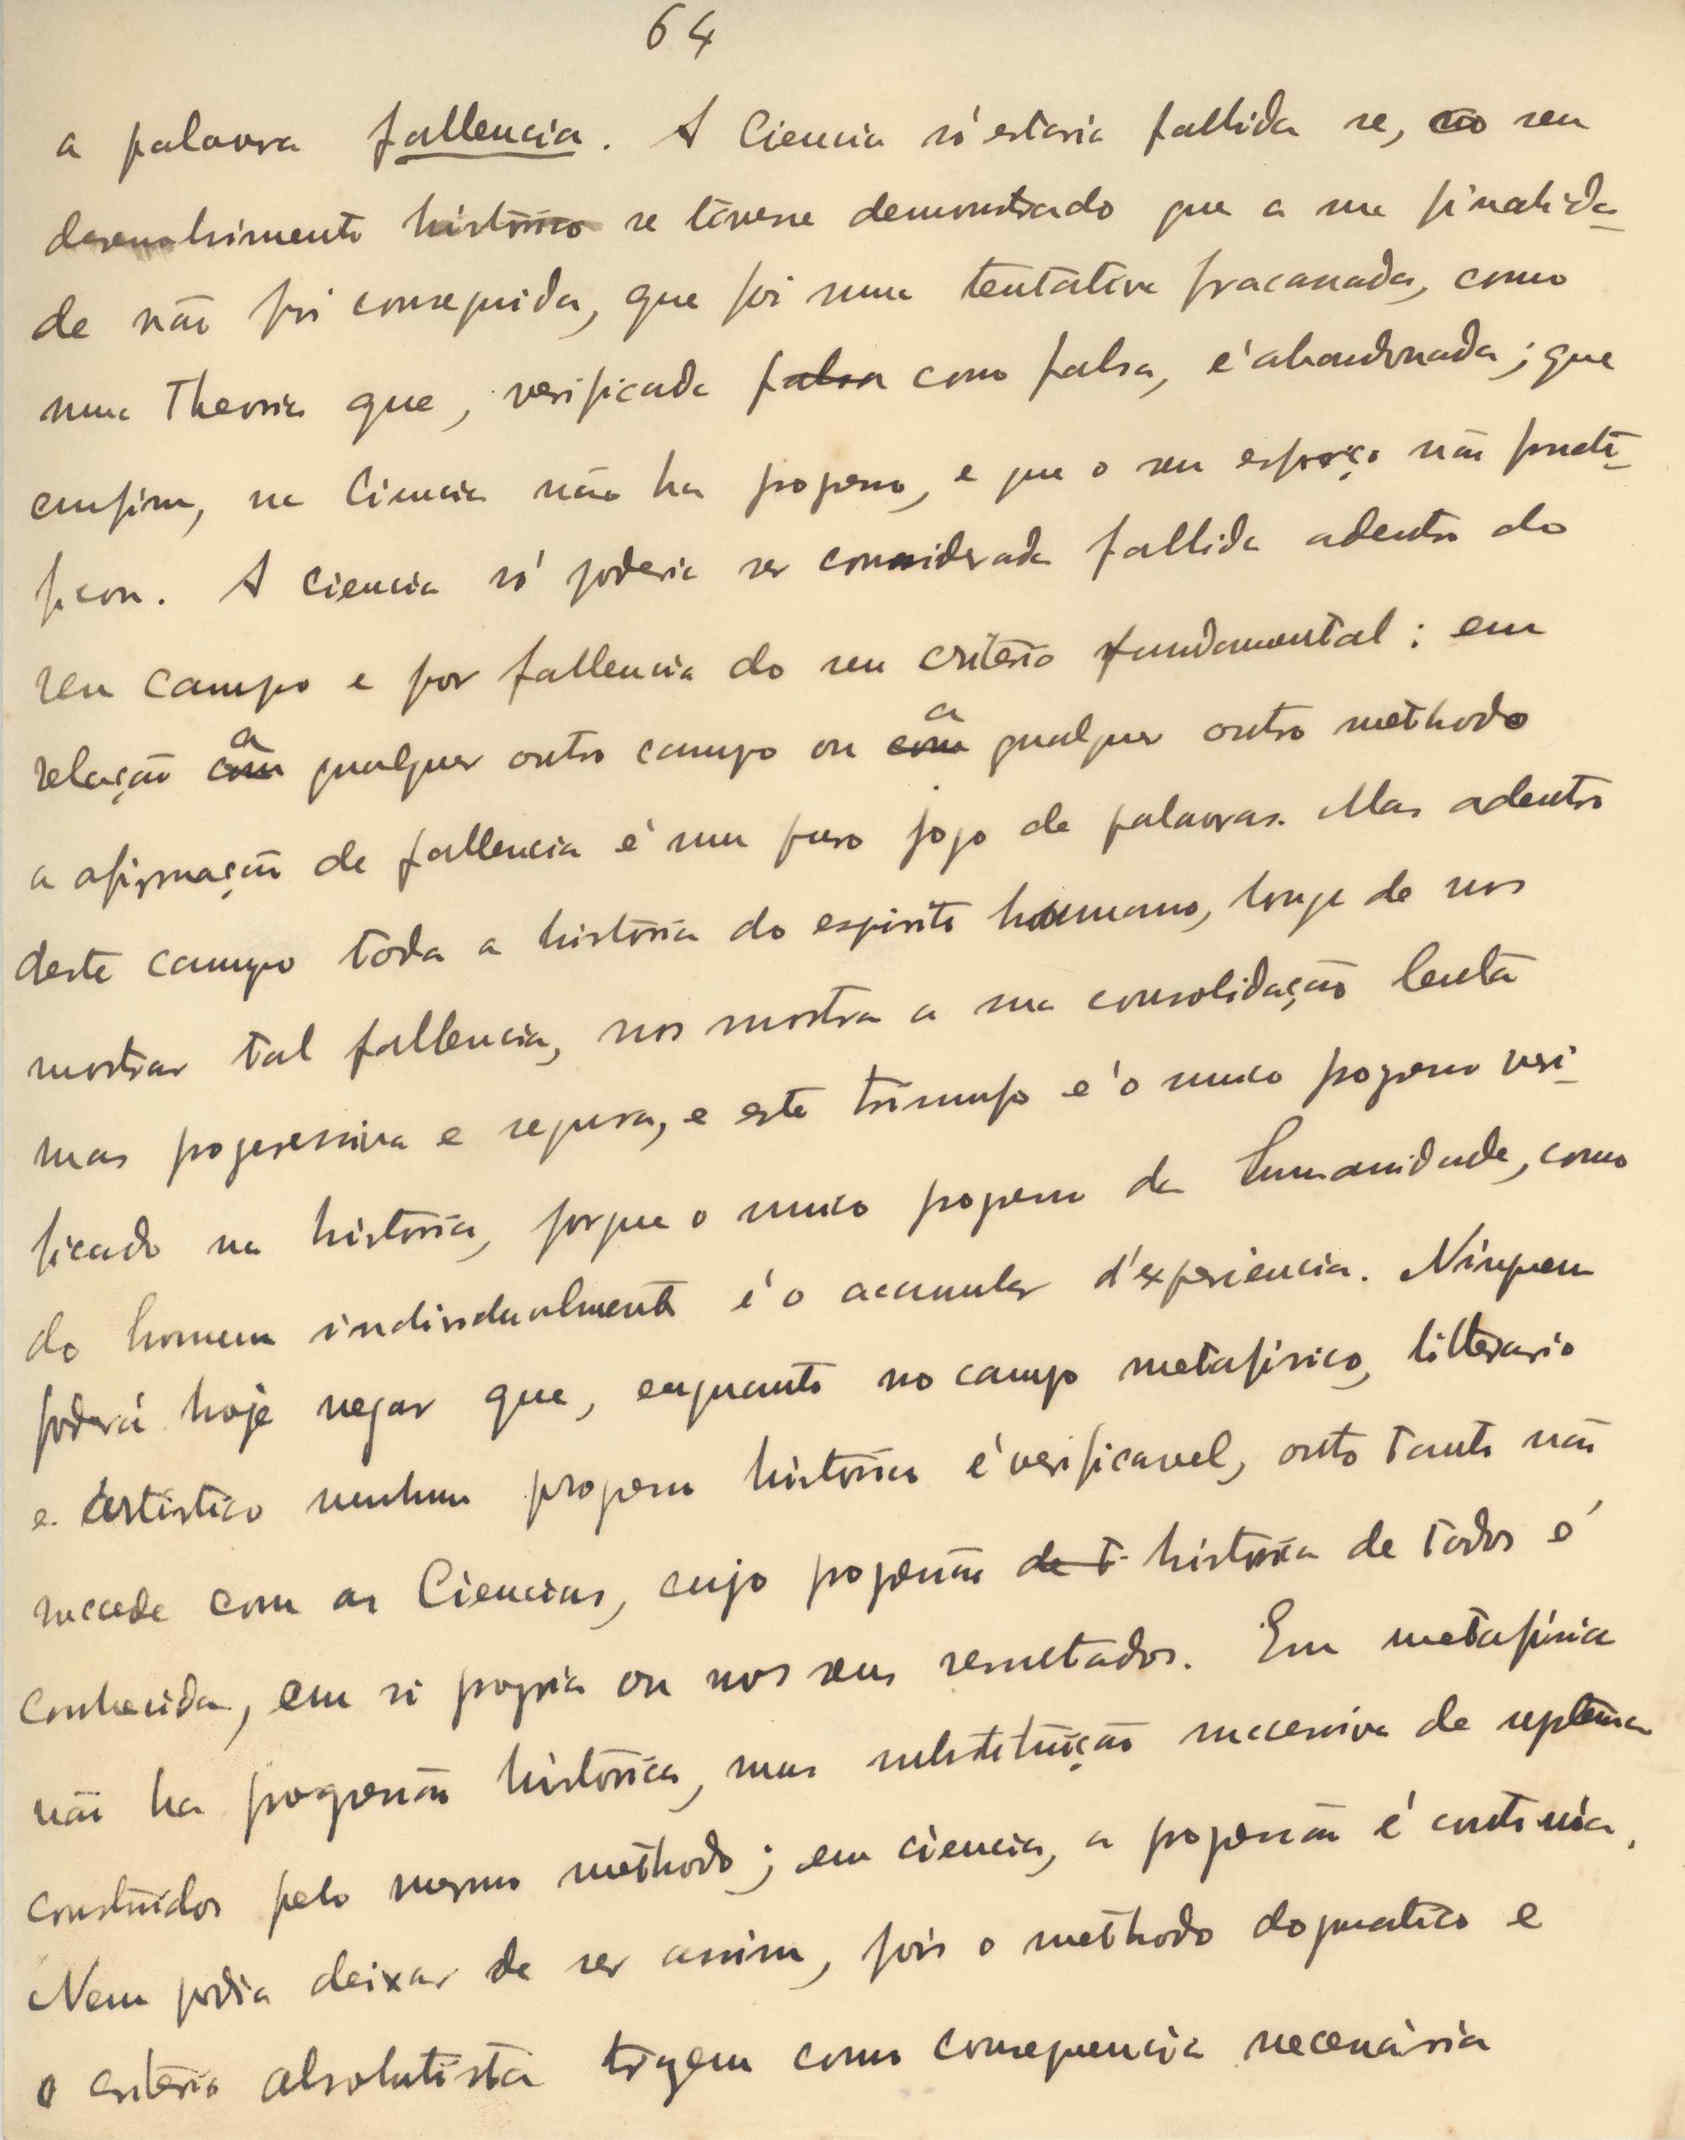 64
a palavra fallencia. A Ciencia só estaria fallida se, no seu
desenvolvimento historico se tivesse demonstrado que a sua finalida-
de não foi conseguida, que foi uma tentativa fracassada, como
uma theoria que, verificada falsa como falsa, é abandonada; que
emfim, na Ciencia não ha progresso, e que o seu esforço não fructi-
ficou. A Ciencia só poderia ser considerada fallida adentro do
seu campo e por fallencia do seu critério fundamental: em
relação com a qualquer outro campo ou com a qualquer outro methodo
a afirmação de fallencia é um puro jogo de palavras. Mas adentro
deste campo toda a história do espirito humano, longe de nos
mostrar tal fallencia, nos mostra a sua consolidação lenta
mas progressiva e segura, e este triumfo é o unico progresso veri-
ficado na história, porque o unico progresso da humanidade, como
do homem individualmente é o acumular d'experiencia. Ninguem
poderá hoje negar que, enquanto no campo metafísico, litterario
e artístico nenhum progresso histórico é verificavel, outo tanto não
succede com as Ciencias, cujo progressão de t história de todos é
conhecida, em si propria ou nos seus resultados. Em metafísica
não ha progressão histórica, mas substituição successiva de systemas
construidos pelo mesmo methodo; em ciencia, a progressão é continúa.
Nem podia deixar de ser assim, pois o methodo dogmatico e
o critério absolutista trazem como consequencia necessária